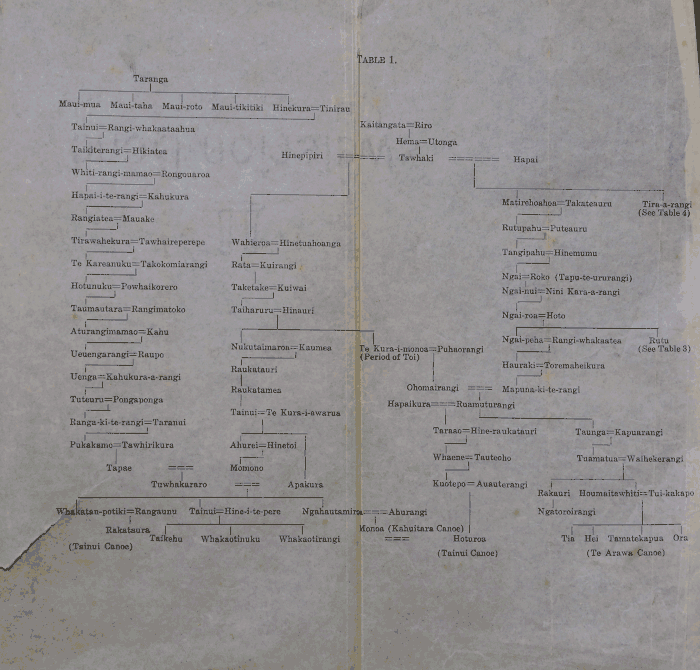 TABLE I.
Taranga
Maui-mua Maui-taha Maui-roto Maui-tikitiki Hinekura=Tinirau
Kaitangata=Riro
Tainui=Rangi-whakaataahua
Hema=Utonga
Taikiterangi=Hikiatea
Hinepipiri ==== Tawhaki ==== Hapai
Whiti-rangi-mamao=Rongouaroa
Hapai-i-te-rangi=Kahukura
Matirehoahoa=Takateauru Tira-a-rangi
(See Table 4)
Rangiatea=Mauake
Rutupahu=Puteauru
Tirawahekura=Tawhaireperepe Wahieroa=Hinetuahoanga
Tangipahu=Hinemumu
Te Kareanuku=Takokomiarangi Rata=Kuirangi
Ngai=Roko (Tapu-te-ururangi)
Hotunuku=Powhaikorero Taketake=Kuiwai Ngai-nui=Nini Kara-a-rangi
Taumautara=Rangimatoko Taiharuru=Hinauri Ngai-roa=Hoto
Aturangimamao=Kahu
Nukutaimaroa=Kaumea Te Kura-i-monoa=Puhaorangi Ngai-peha=Rangi-whakaatea Rutu
(Period of Toi) (See Table 3)
Ueuengarangi=Raupo
Raukatauri Hauraki=Toremaheikura
Uenga=Kahukura-a-rangi
Raukatamea Ohomairangi === Mapuna-ki-te-rangi
Tuteuru=Pongaponga Hapaikura===Ruamuturangi
Tainui=Te Kura-i-awarua
Ranga-ki-te-rangi=Taranui Taraao=Hine-raukatauri Taunga=Kapuarangi
Pukakamo=Tawhirikura Ahurei=Hinetoi
Whaene=Tauteoho Tuamatua=Waihekerangi
Tapae === Momono
Tuwhakararo === Apakura Kuotepo=Auauterangi
Rakauri Houmaitawhiti=Tui-kakapo
Whakatau-potiki=Rangaunu Tainui=Hine-i-te-pere Ngahautamira===Ahurangi Ngatoroirangi
Rakataura Monoa (Kahuitara Canoe)
(Tainui Canoe) Taikehu Whakaotinuku Whakaotirangi === Hoturoa Tia Hei Tamatekapua Ora
(Tainui Canoe) (Te Arawa Canoe)